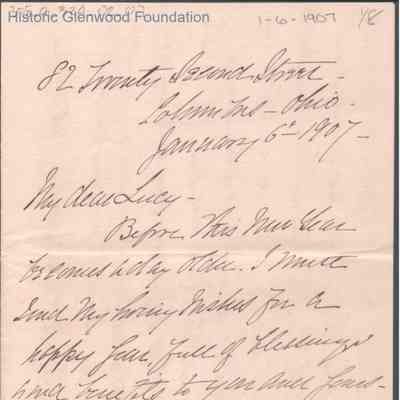 Historic Glenwood Foundation
1-6-1907
82 Twenty Second Street -
Columbus - Ohio -
January 6th 1907 -
My dear Lucy -
Before this New Year
becomes a day older, I must
send my loving wishes for a
happy year, full of blessings
and benefits to you and yours -